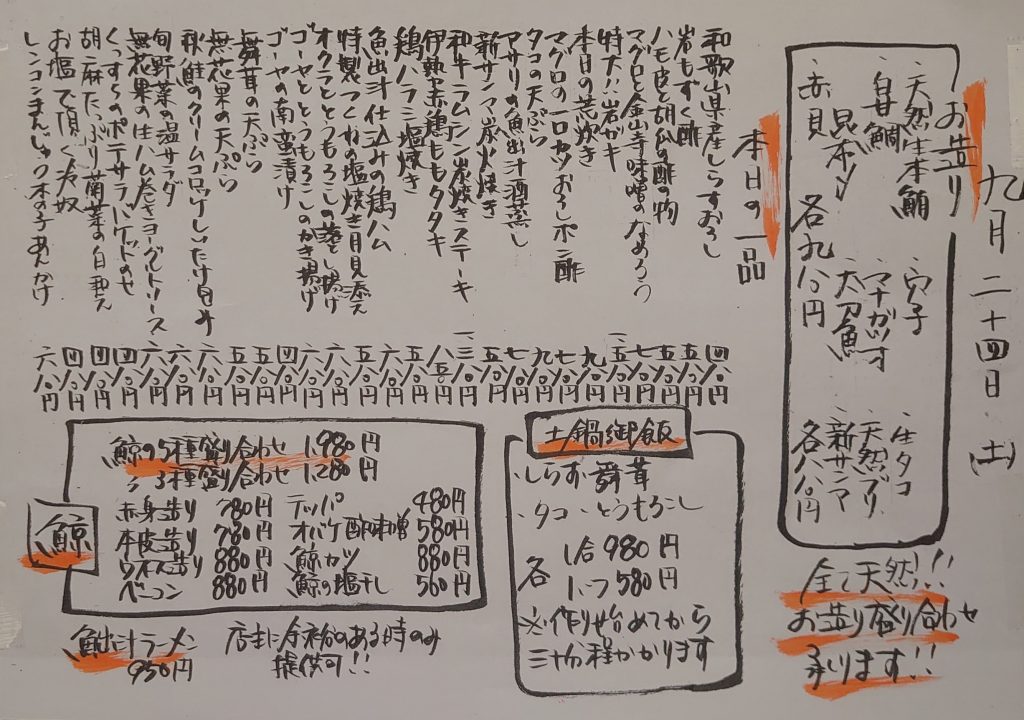 九月二十四日(土)
お造り
・天然生本鮪
・白甘鯛
・昆布〆
・赤貝 各九八〇円
・穴子
・マナガツオ
・太刀魚
・生タコ
・天然ブリ
・新サンマ
各八八〇円
全て天然!!
お造り盛り合わせ
承ります!!
本日の一品
和歌山県産しらすおろし 四八〇円
岩もずく酢 五八〇円
ハモ皮と胡瓜の酢の物 五八〇円
マグロと金山寺味噌のなめろう 七八〇円
特大!岩がき
本日の荒炊き 九八〇円
マグロの一口カツおろしポン酢 七八〇円
タコの天ぷら 九八〇円
アサリの魚出汁酒蒸し 七八〇円
新サンマ炭火焼き 五八〇円
和牛ラムシン炭焼きステーキ
伊勢赤鶏ももタタキ 八五〇円
鶏ハラミ塩焼き 五八〇円
魚出汁仕込みの鶏ハム 六八〇円
特製つくねの塩焼き月見添え 五八〇円
オクラととうもろこしの落とし揚げ 六八〇円
ゴーヤととうもろこしのかき揚げ 六八〇円
ゴーヤの南蛮漬け 四八〇円
舞茸の天ぷら 五八〇円
無花果の天ぷら 五八〇円
秋鮭のクリームコロッケしいたけ包み 六八〇円
旬野菜の温サラダ 六八〇円
無花果の生ハム巻きヨーグルトソース 六八〇円
くんすらのポテサラバケットのせ 四八〇円
胡麻たっぷり菊菜の白和え 四八〇円
お塩で頂く冷奴 四八〇円
レンコンまんじゅう木の子あんかけ 六八〇円
土鍋御飯
・しらす・舞茸
・タコ・とうもろこし
各 1合 980円
1/2 580円
※作り始めてから
三十分程かかります
鯨
鯨の5種盛り合わせ 1,980円
〃 3種盛り合わせ 1,280円
赤身造り 780円
本皮造り 780円
ウネス造り 880円
ベーコン 880円
テッパ 480円
オバケ酢味噌 580円
鯨カツ 880円
鯨の塩干し 560円
魚出汁ラーメン
950円
店主に余裕のある時のみ
提供可!!